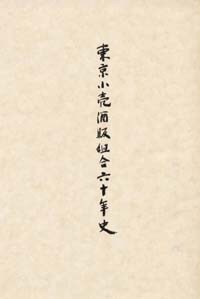 東京小売酒販組合六十年史